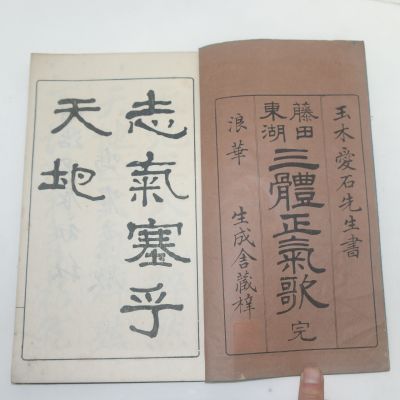 玉木愛石先生書
藤田東湖
三體正氣歌 完
浪華 生成舍藏梓
志氣塞乎
天地